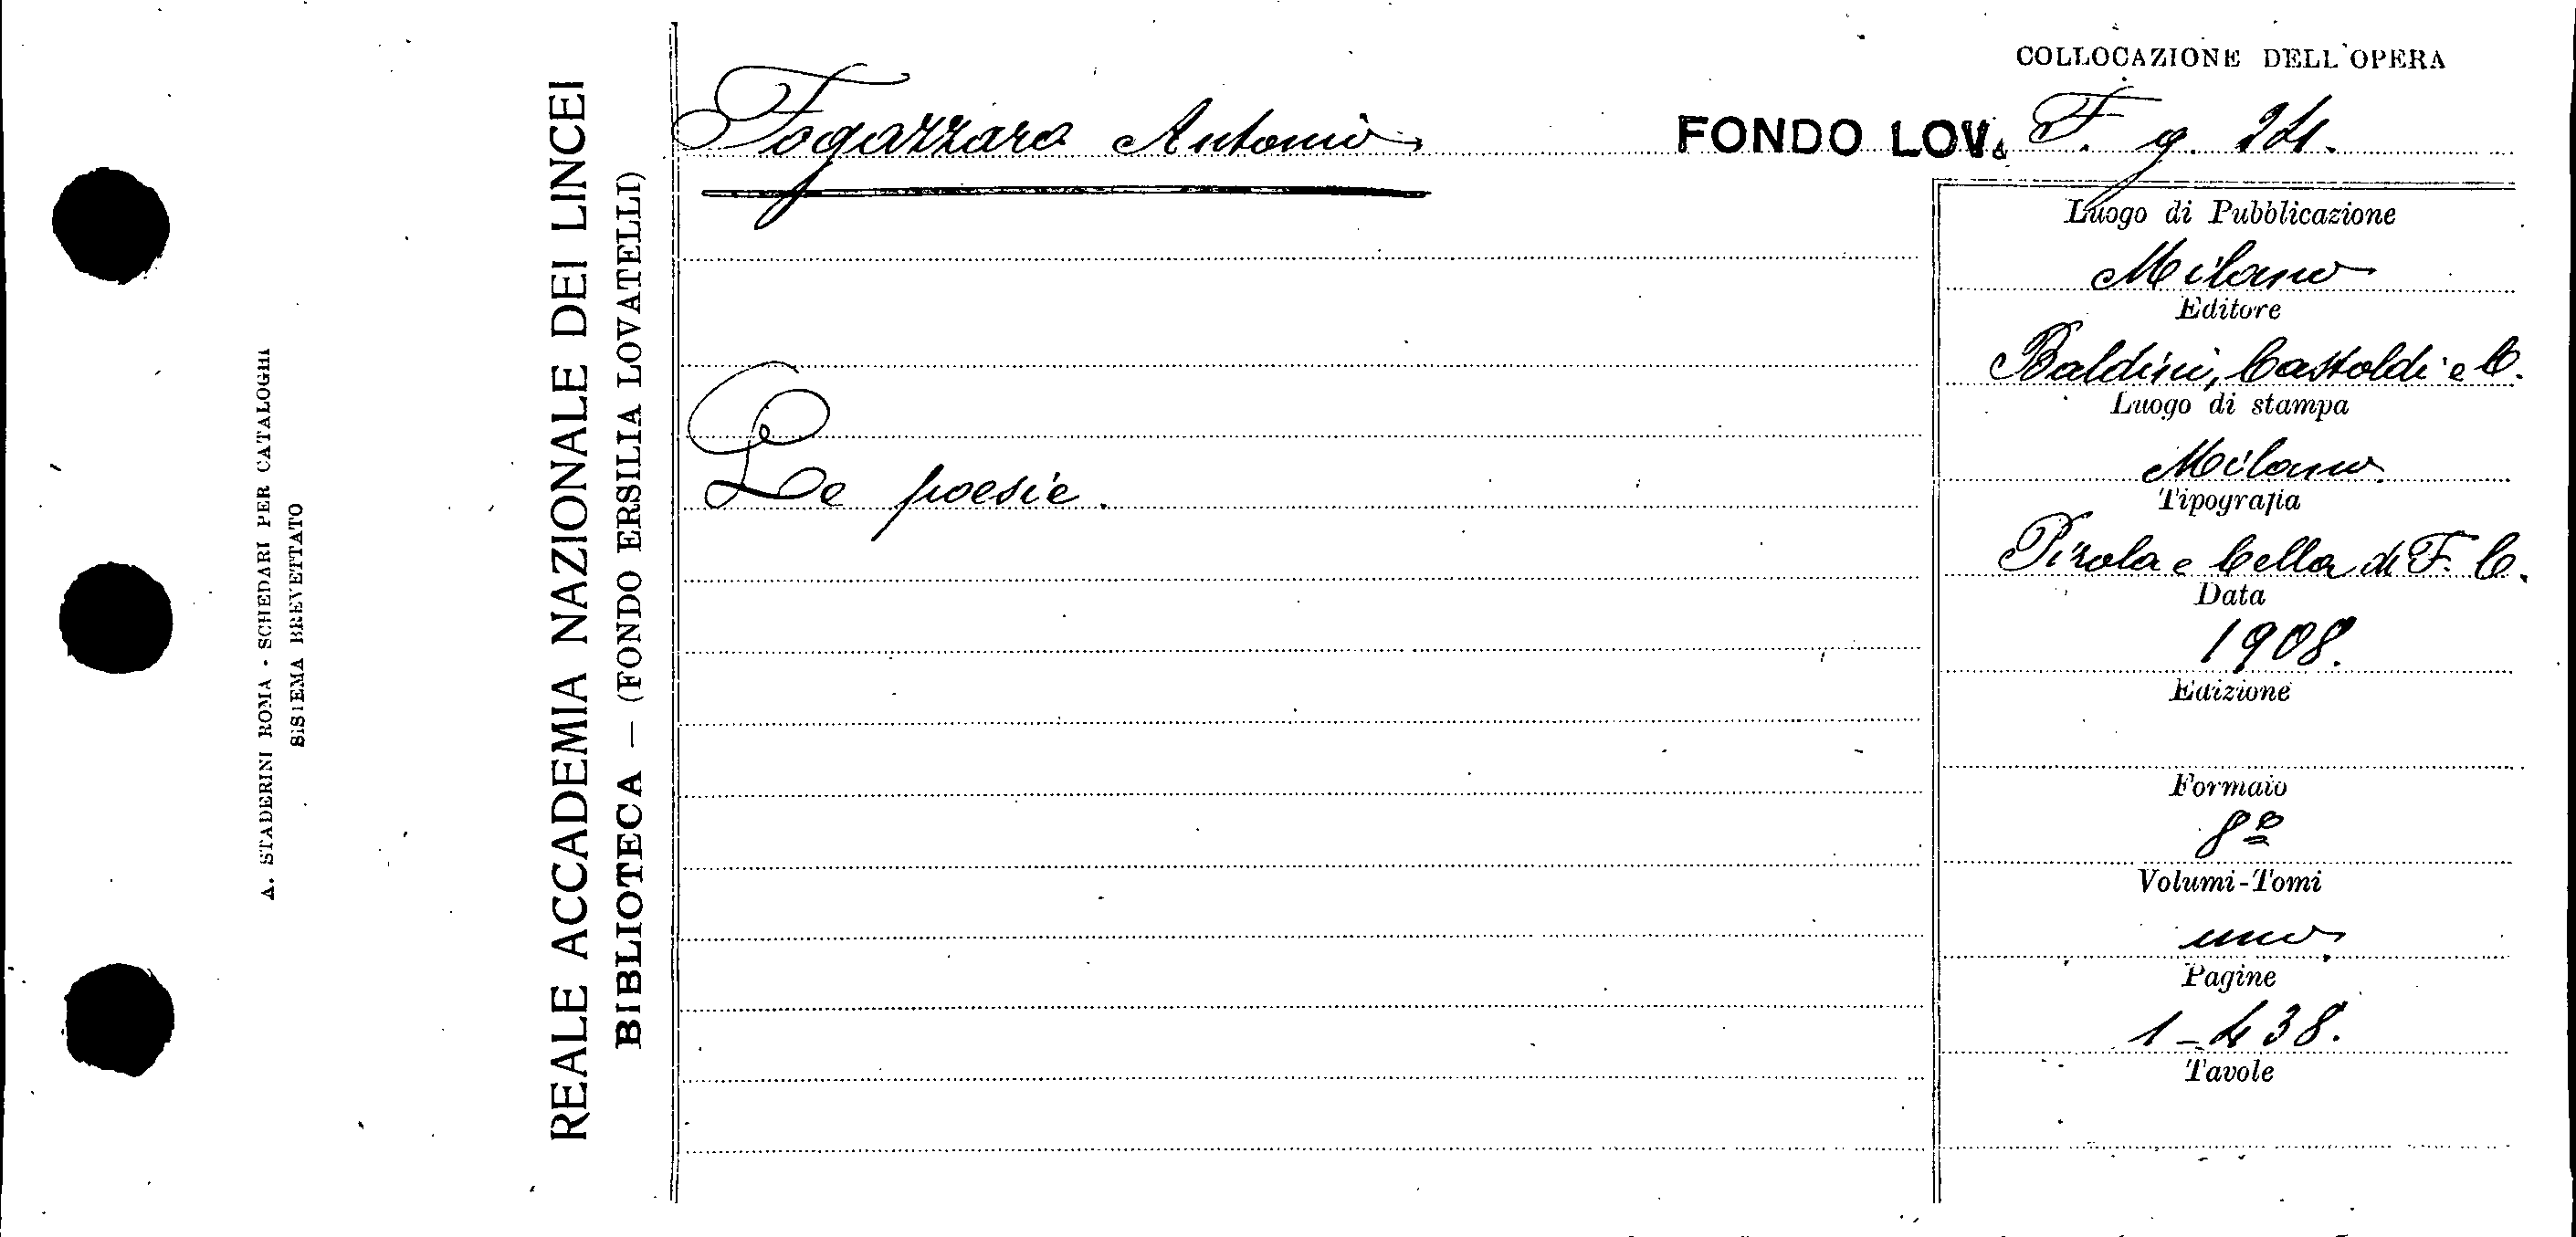 A. STADERINI ROMA - SCHEDARI PER CATALOGHI
SISTEMA BREVETTATO
REALE ACCADEMIA NAZIONALE DEI LINCEI
BIBLIOTECA — (FONDO ERSILIA LOVATELLI)
COLLOCAZIONE DELL'OPERA
Fogazzaro Antonio
FONDO LOV. F. g. 24.
Le poesie.
Luogo di Pubblicazione
Milano
Editore
Baldini, Castoldi e C.
Luogo di stampa
Milano
Tipografia
Pirola e Cella di F. C.
Data
1908.
Edizione
Formato
8º
Volumi-Tomi
uno
Pagine
1-438.
Tavole